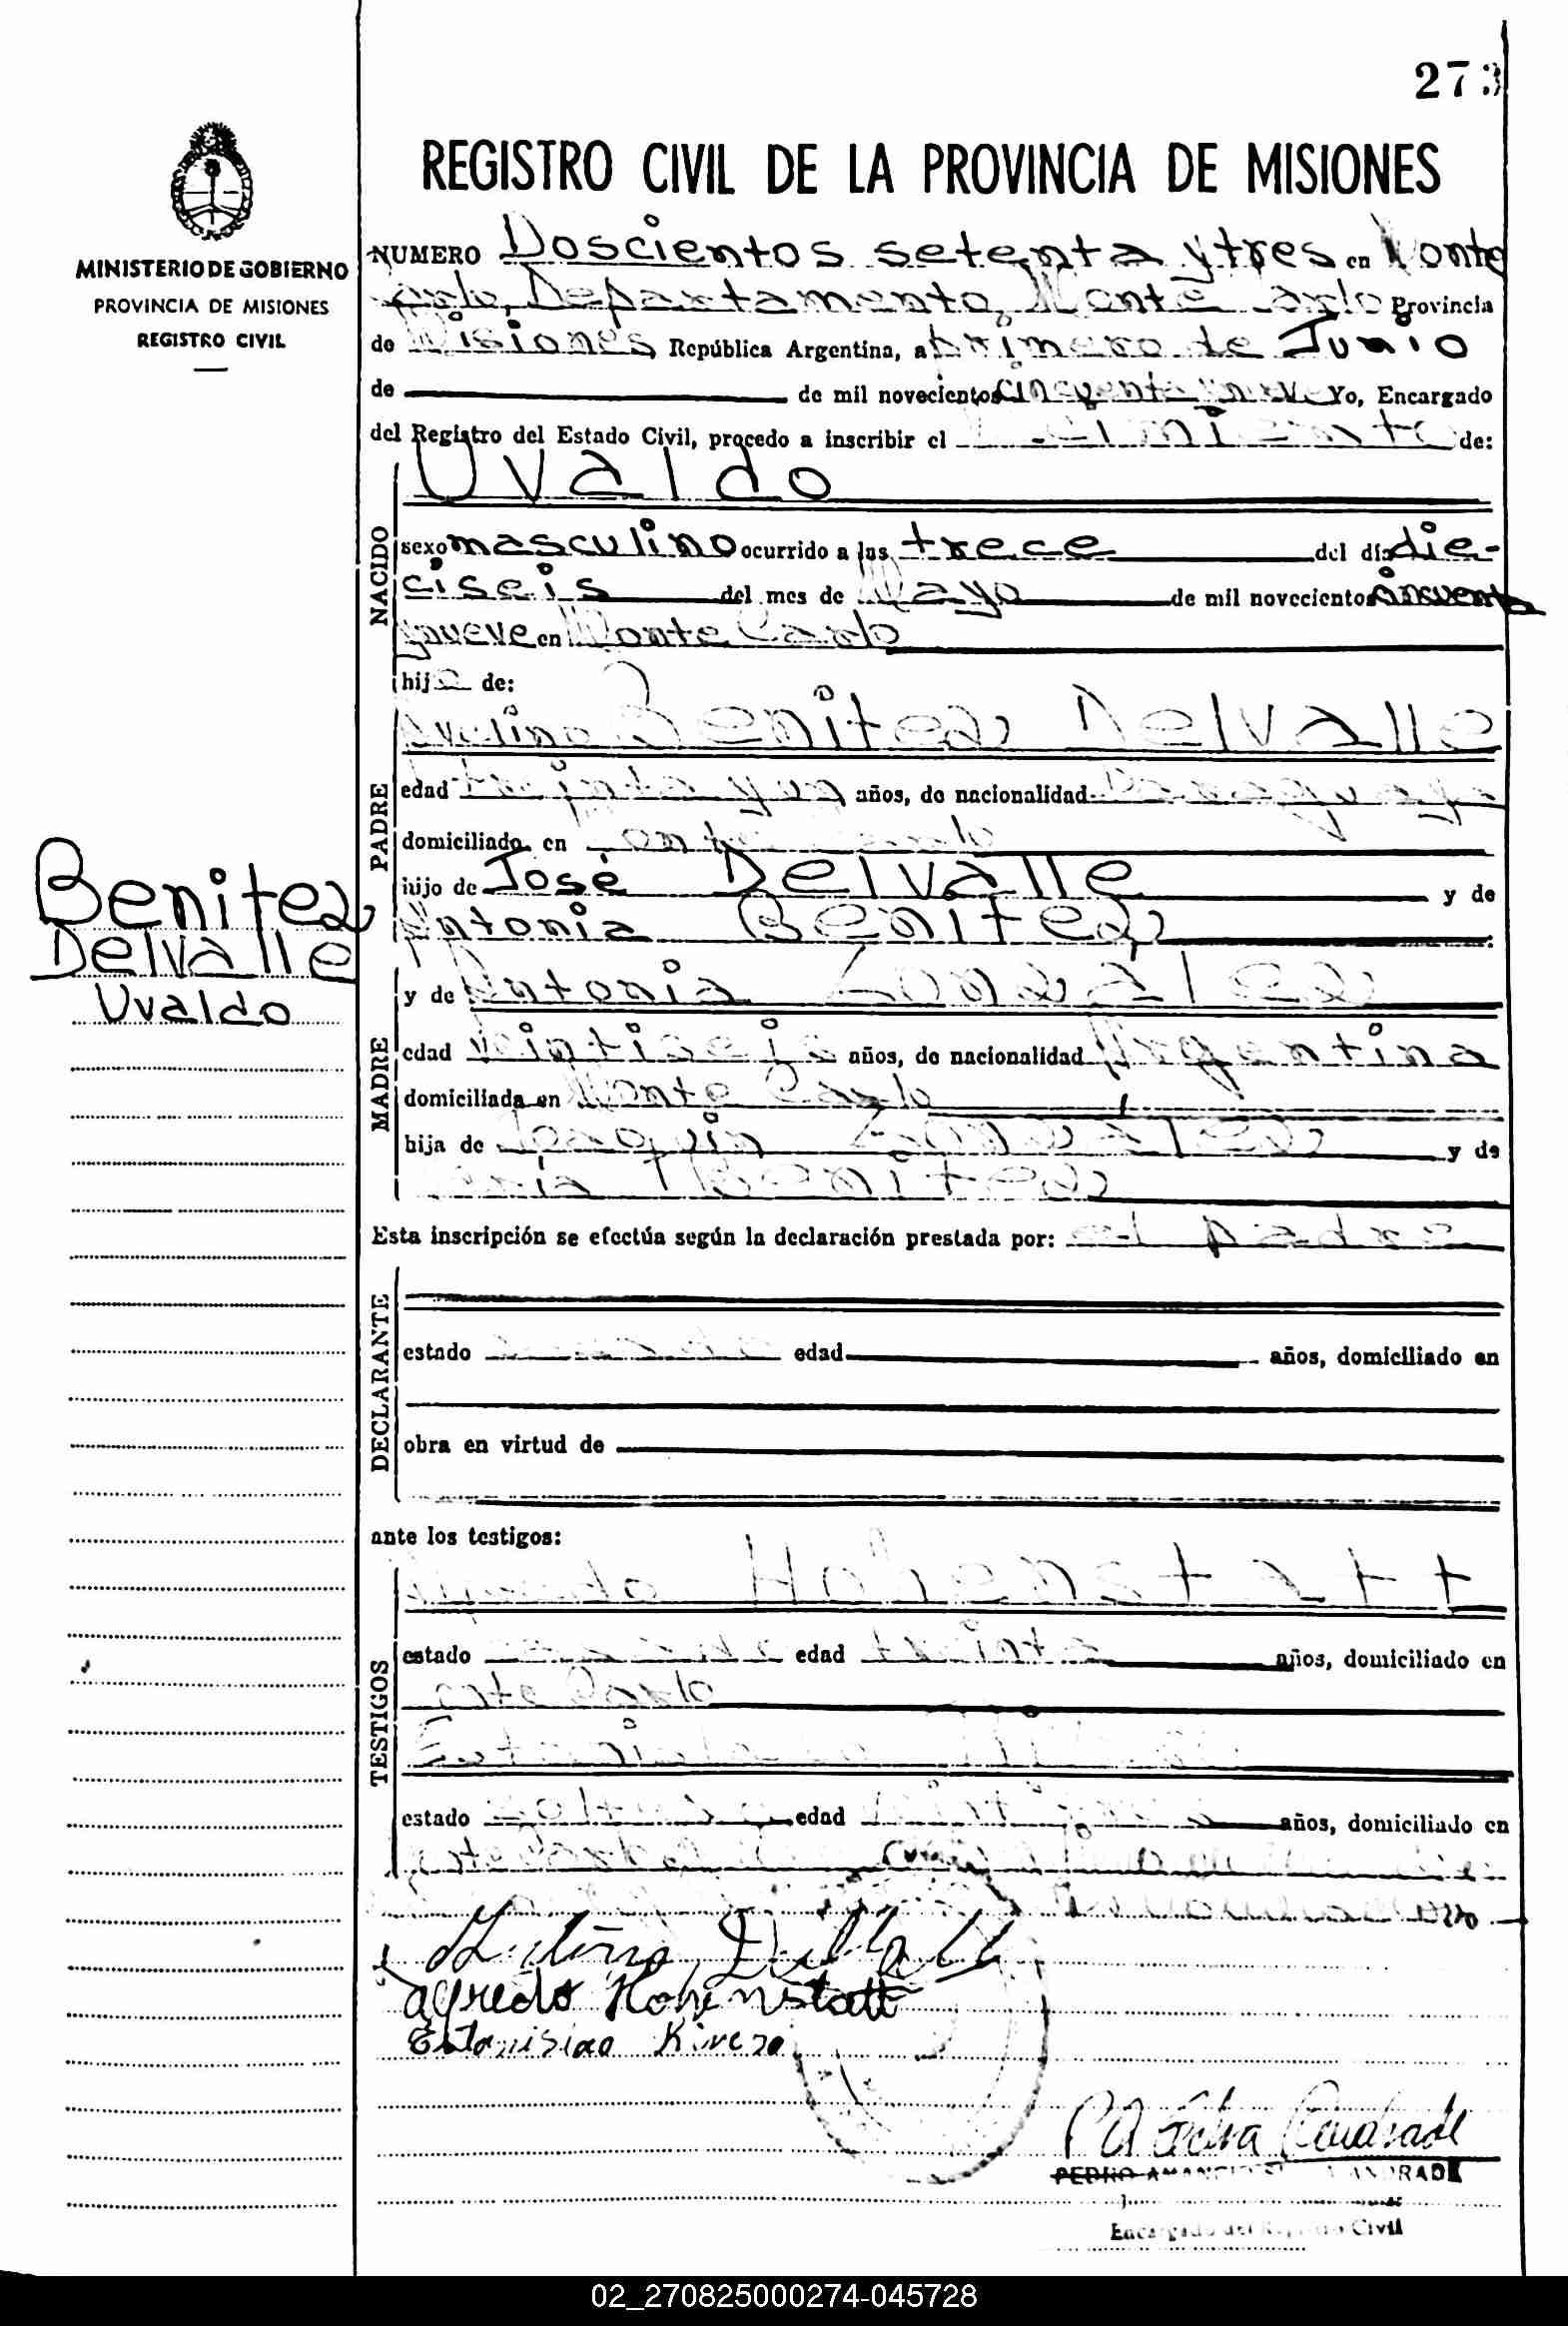 273
REGISTRO CIVIL DE LA PROVINCIA DE MISIONES
MINISTERIO DE GOBIERNO
PROVINCIA DE MISIONES
REGISTRO CIVIL
NUMERO Doscientos setenta y tres en Monte
Carlo, Departamento Monte Carlo Provincia
de Misiones República Argentina, a primero de Junio
de de mil novecientos cincuenta y nueve Yo, Encargado
del Registro del Estado Civil, procedo a inscribir el nacimiento de:
NACIDO
Uvaldo
sexo masculino ocurrido a las trece del día die-
ciseis del mes de Mayo de mil novecientos cincuenta
y nueve en Monte Carlo
hijo de:
PADRE
Benitez Delvalle
edad treinta y un años, de nacionalidad Paraguaya
domiciliado en Monte Carlo
hijo de José Delvalle y de
Antonia Benitez
Benitez
Delvalle
Uvaldo
MADRE
y de Antonia Gonzalez
edad Veintiseis años, de nacionalidad Argentina
domiciliada en Monte Carlo
hija de Joaquin Gonzalez y de
Benitez
Esta inscripción se efectúa según la declaración prestada por: el padre
DECLARANTE
estado edad años, domiciliado en
obra en virtud de
ante los testigos:
TESTIGOS
Hohenstatt
estado edad treinta años, domiciliado en
Monte Carlo
estado soltero edad años, domiciliado en
Delvalle
alfredo Hohenstatt
Estanislao Rivero
PEDRO ANDRADE
Encargado del Registro Civil
02_270825000274-045728